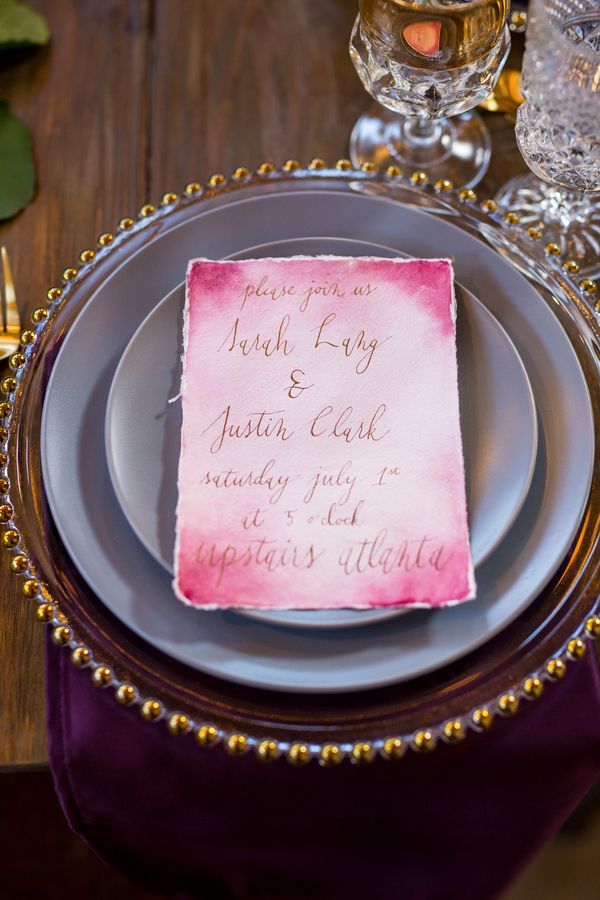 please join us
Sarah Lang
&
Justin Clark
saturday july 1st
at 5 o'clock
upstairs atlanta